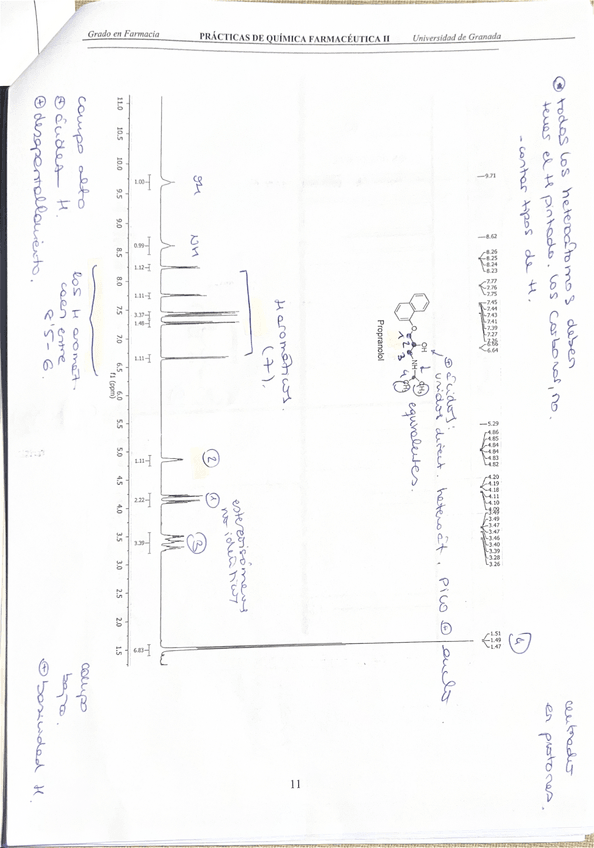 Grado en Farmacia
PRÁCTICAS DE QUÍMICA FARMACÉUTICA II
Universidad de Granada
⊛ todos los heteroátomos deben
tener el H pintado. los carbonos, no.
- contar tipos de H.
centrados
en protones.
9.71
8.62
8.26
8.25
8.24
8.23
7.77
7.75
7.45
7.44
7.43
7.41
7.39
7.27
7.26
6.66
6.64
5.29
4.86
4.85
4.84
4.84
4.83
4.82
4.20
4.19
4.18
4.11
4.10
4.09
3.49
3.49
3.47
3.47
3.46
3.40
3.39
3.28
3.26
1.51
1.49
1.47
4
⊕ ácidos:
unidos direct. heteroát. pico ⊕ ancho.
O
OH
NH
CH₃
1 2 3 4
equivalentes.
Propranolol
H aromáticos
(7).
estereoisómeros
no idénticos
OH
NH
2
1
3
1.00
0.99
1.12
1.11
3.37
1.48
1.11
1.11
2.22
3.39
6.83
11.0
10.5
10.0
9.5
9.0
8.5
8.0
7.5
7.0
6.5
6.0
5.5
5.0
4.5
4.0
3.5
3.0
2.5
2.0
1.5
f1 (ppm)
los H aromát.
caen entre
8'5-6.
campo alto
⊕ acidez H.
⊕ desapantallamiento.
campo
bajo.
⊕ basicidad H.
11